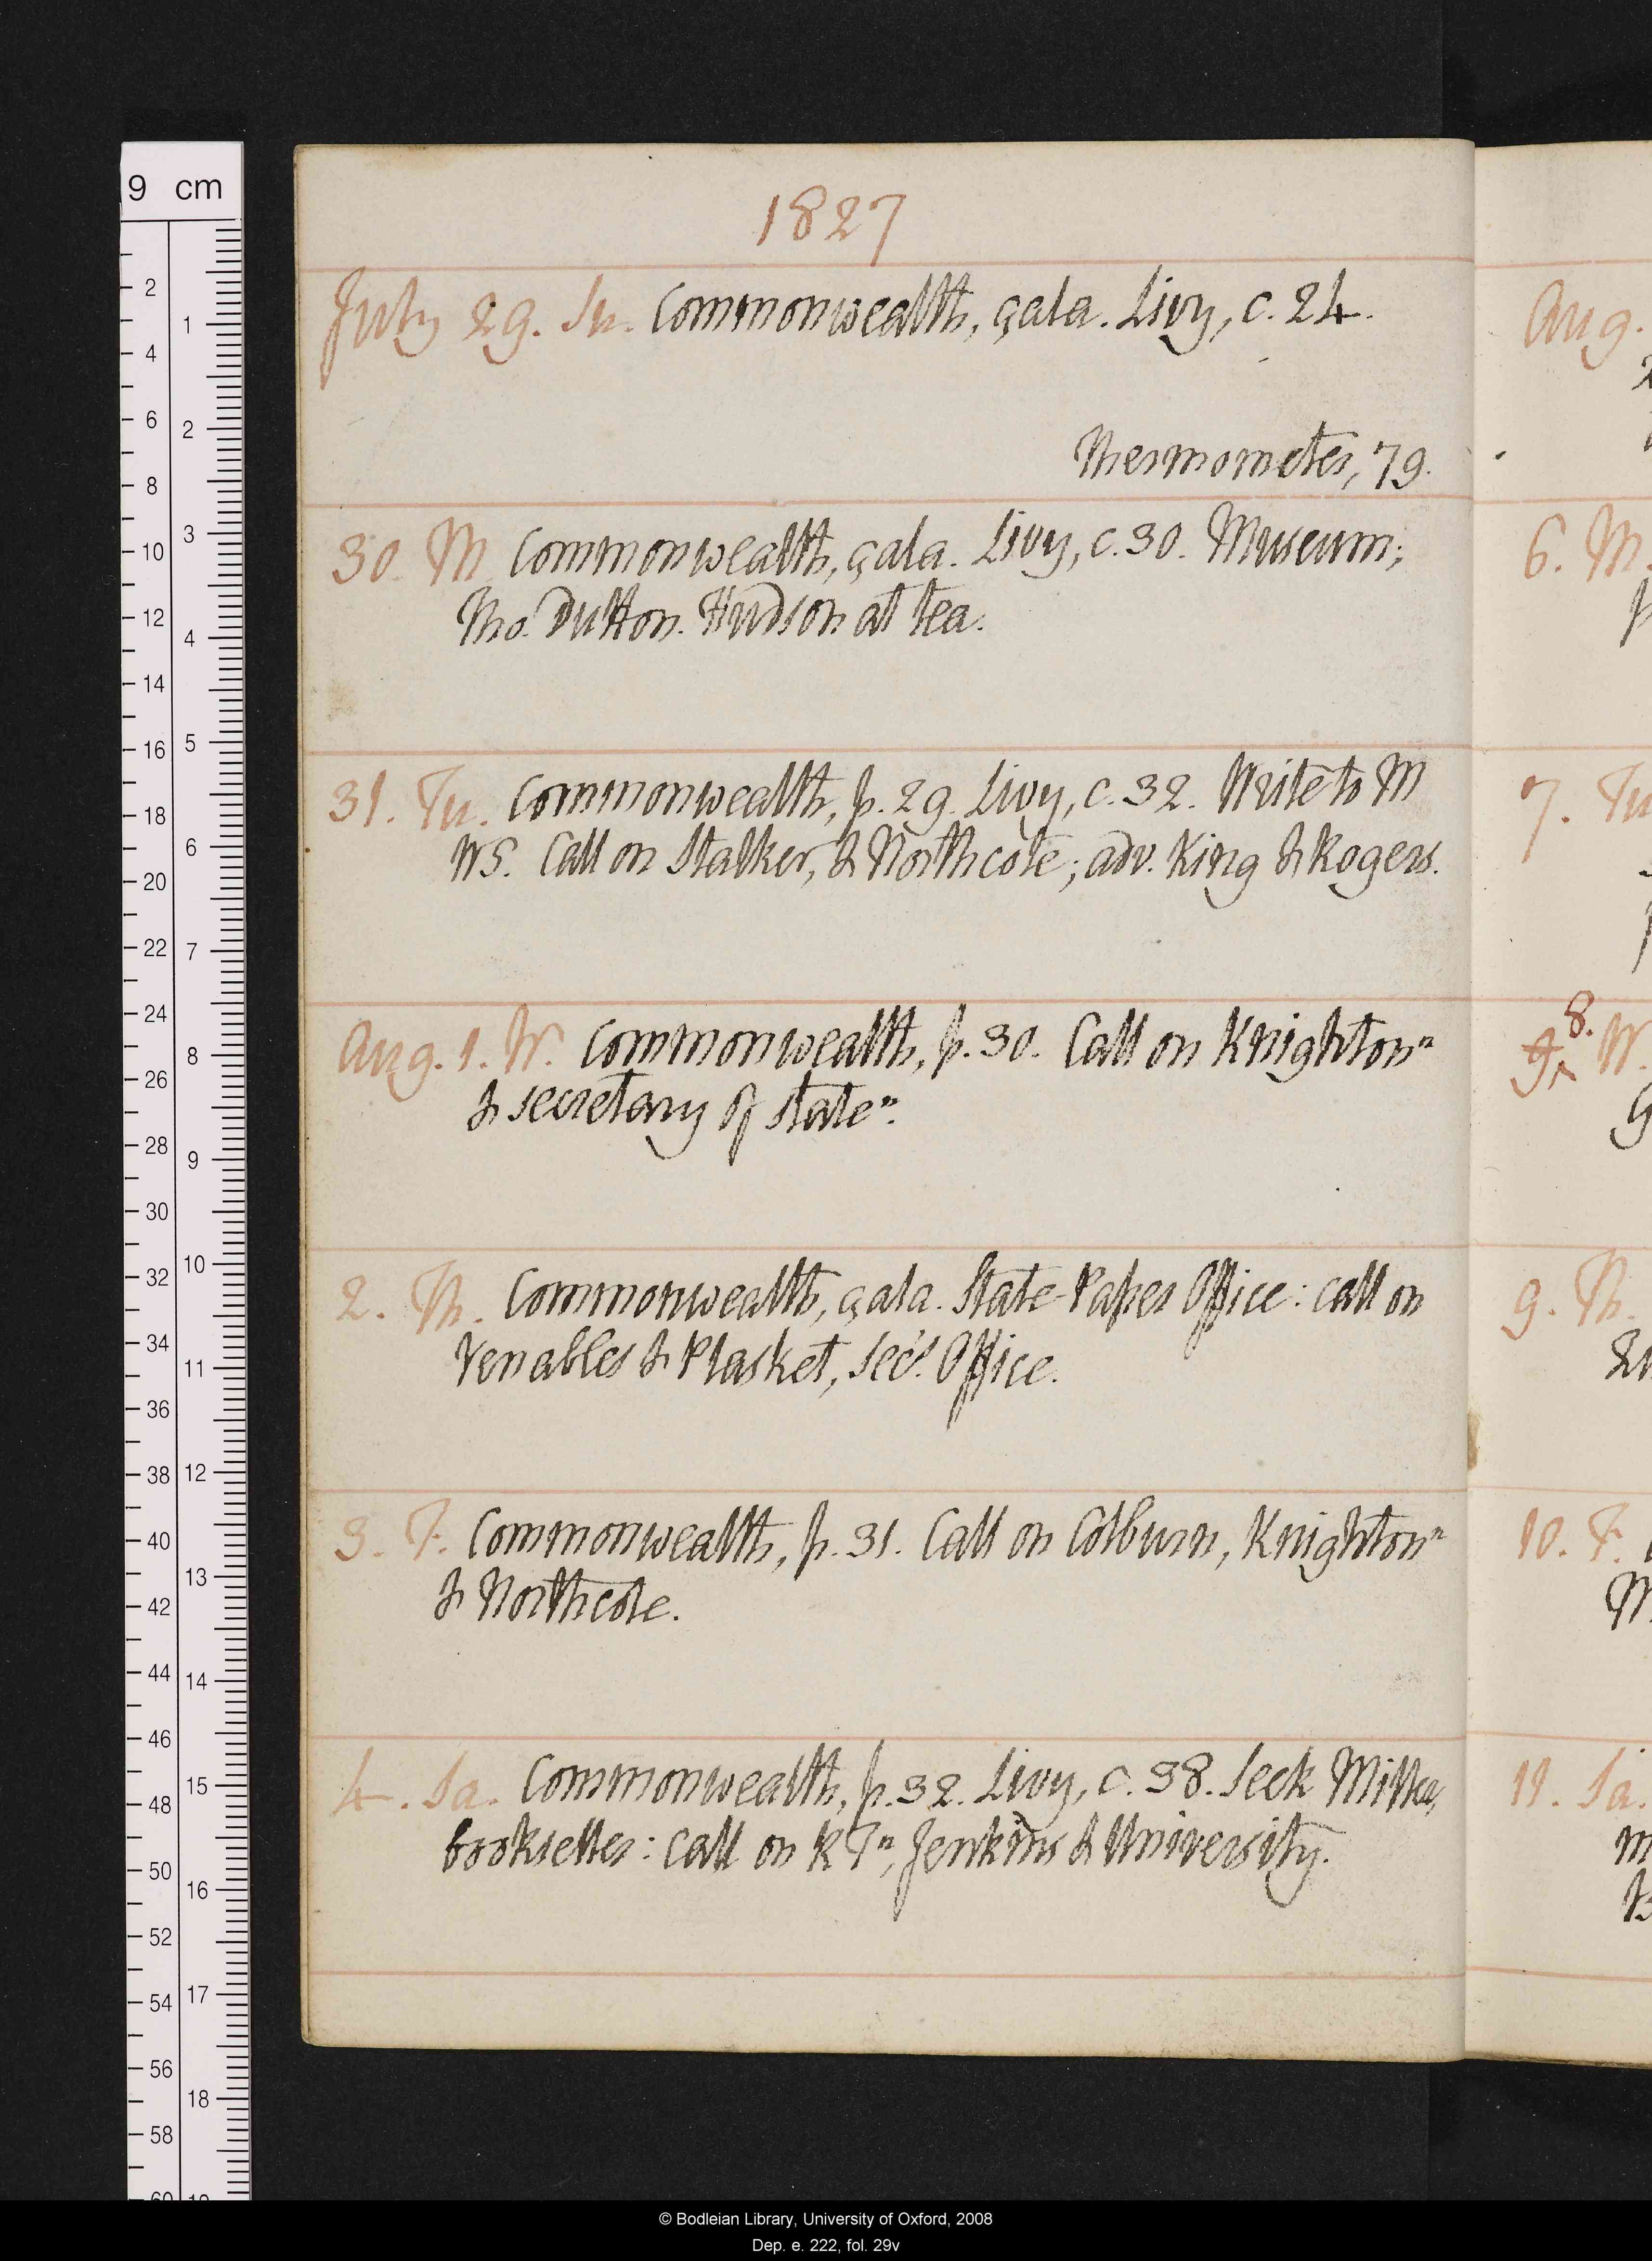 1827
July 29. Su. Commonwealth, çala. Livy, c. 24.
Thermometer, 79.
30. M. Commonwealth, çala. Livy, c. 30. Museum;
Tho. Dutton. Hudson at tea.
31. Tu. Commonwealth, p. 29. Livy, c. 32. Write to M
WS. Call on Stalker, & Northcote; adv. King & Rogers.
Aug. 1. W. Commonwealth, p. 30. Call on Knighton n
& secretary of state n.
2. Th. Commonwealth, çala. State-Paper Office: call on
Venables & Plasket, Sec's. Office.
3. F. Commonwealth, p. 31. Call on Colburn, Knighton n
& Northcote.
4. Sa. Commonwealth, p. 32. Livy, c. 38. Seek Miller,
bookseller: call on K T n, Jenkins & University.
Aug.
6. M.
7. Tu
8.
9. W.
9. Th.
10. F.
M
11. Sa.
m
9 cm
2
4
6
8
10
12
14
16
18
20
22
24
26
28
30
32
34
36
38
40
42
44
46
48
50
52
54
56
58
60
1
2
3
4
5
6
7
8
9
10
11
12
13
14
15
16
17
18
19
© Bodleian Library, University of Oxford, 2008
Dep. e. 222, fol. 29v